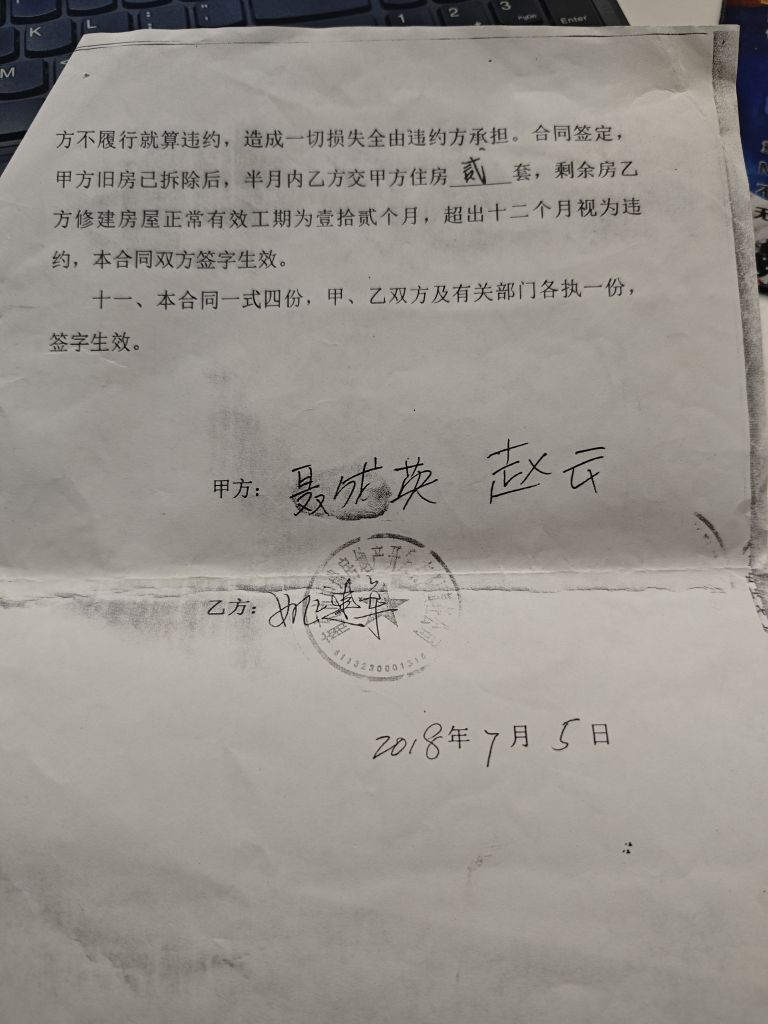 方不履行就算违约，造成一切损失全由违约方承担。合同签定，
甲方旧房已拆除后，半月内乙方交甲方住房贰套，剩余房乙
方修建房屋正常有效工期为壹拾贰个月，超出十二个月视为违
约，本合同双方签字生效。
十一、本合同一式四份，甲、乙双方及有关部门各执一份，
签字生效。
甲方：聂成英 赵云
乙方：姬建军
房地产开
2018年7月5日
K
M
1
2
3
PgDn
Enter